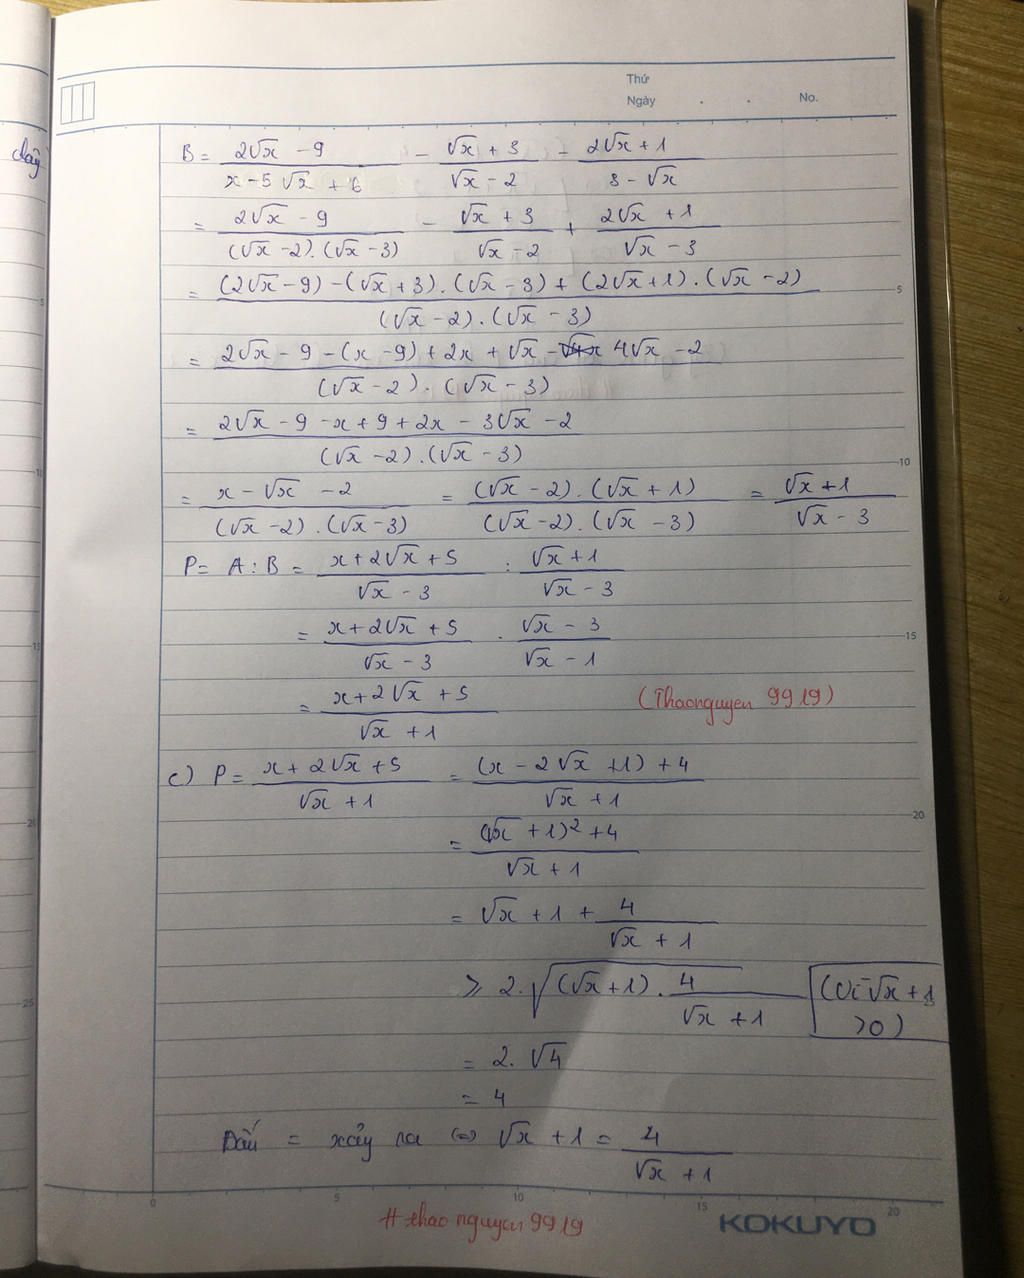 Thứ
Ngày . . No.
đây
B = (2√x - 9)/(x - 5√x + 6) - (√x + 3)/(√x - 2) - (2√x + 1)/(3 - √x)
= (2√x - 9)/((√x - 2).(√x - 3)) - (√x + 3)/(√x - 2) + (2√x + 1)/(√x - 3)
= ((2√x - 9) - (√x + 3).(√x - 3) + (2√x + 1).(√x - 2))/((√x - 2).(√x - 3))
= (2√x - 9 - (x - 9) + 2x + √x - 4√x - 2)/((√x - 2).(√x - 3))
= (2√x - 9 - x + 9 + 2x - 3√x - 2)/((√x - 2).(√x - 3))
= (x - √x - 2)/((√x - 2).(√x - 3)) = ((√x - 2).(√x + 1))/((√x - 2).(√x - 3)) = (√x + 1)/(√x - 3)
P = A : B = (x + 2√x + 5)/(√x - 3) : (√x + 1)/(√x - 3)
= (x + 2√x + 5)/(√x - 3) . (√x - 3)/(√x - 1)
= (x + 2√x + 5)/(√x + 1)
(Thaonguyen 9919)
c) P = (x + 2√x + 5)/(√x + 1) = ((x - 2√x + 1) + 4)/(√x + 1)
= ((√x + 1)² + 4)/(√x + 1)
= √x + 1 + 4/(√x + 1)
≥ 2.√((√x + 1) . 4/(√x + 1)) (Vì √x + 1 > 0)
= 2.√4
= 4
Dấu = xảy ra (=) √x + 1 = 4/(√x + 1)
5
10
15
20
25
0 5 10 15 20
# thao nguyen 9919
KOKUYO